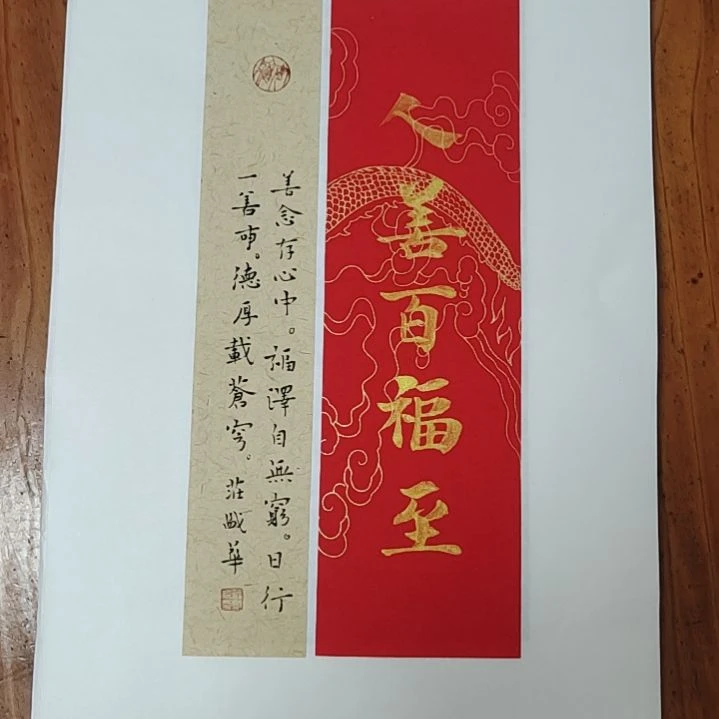 人善百福至
善念存心中。福澤自無窮。日行
一善事。德厚載蒼穹。莊
華